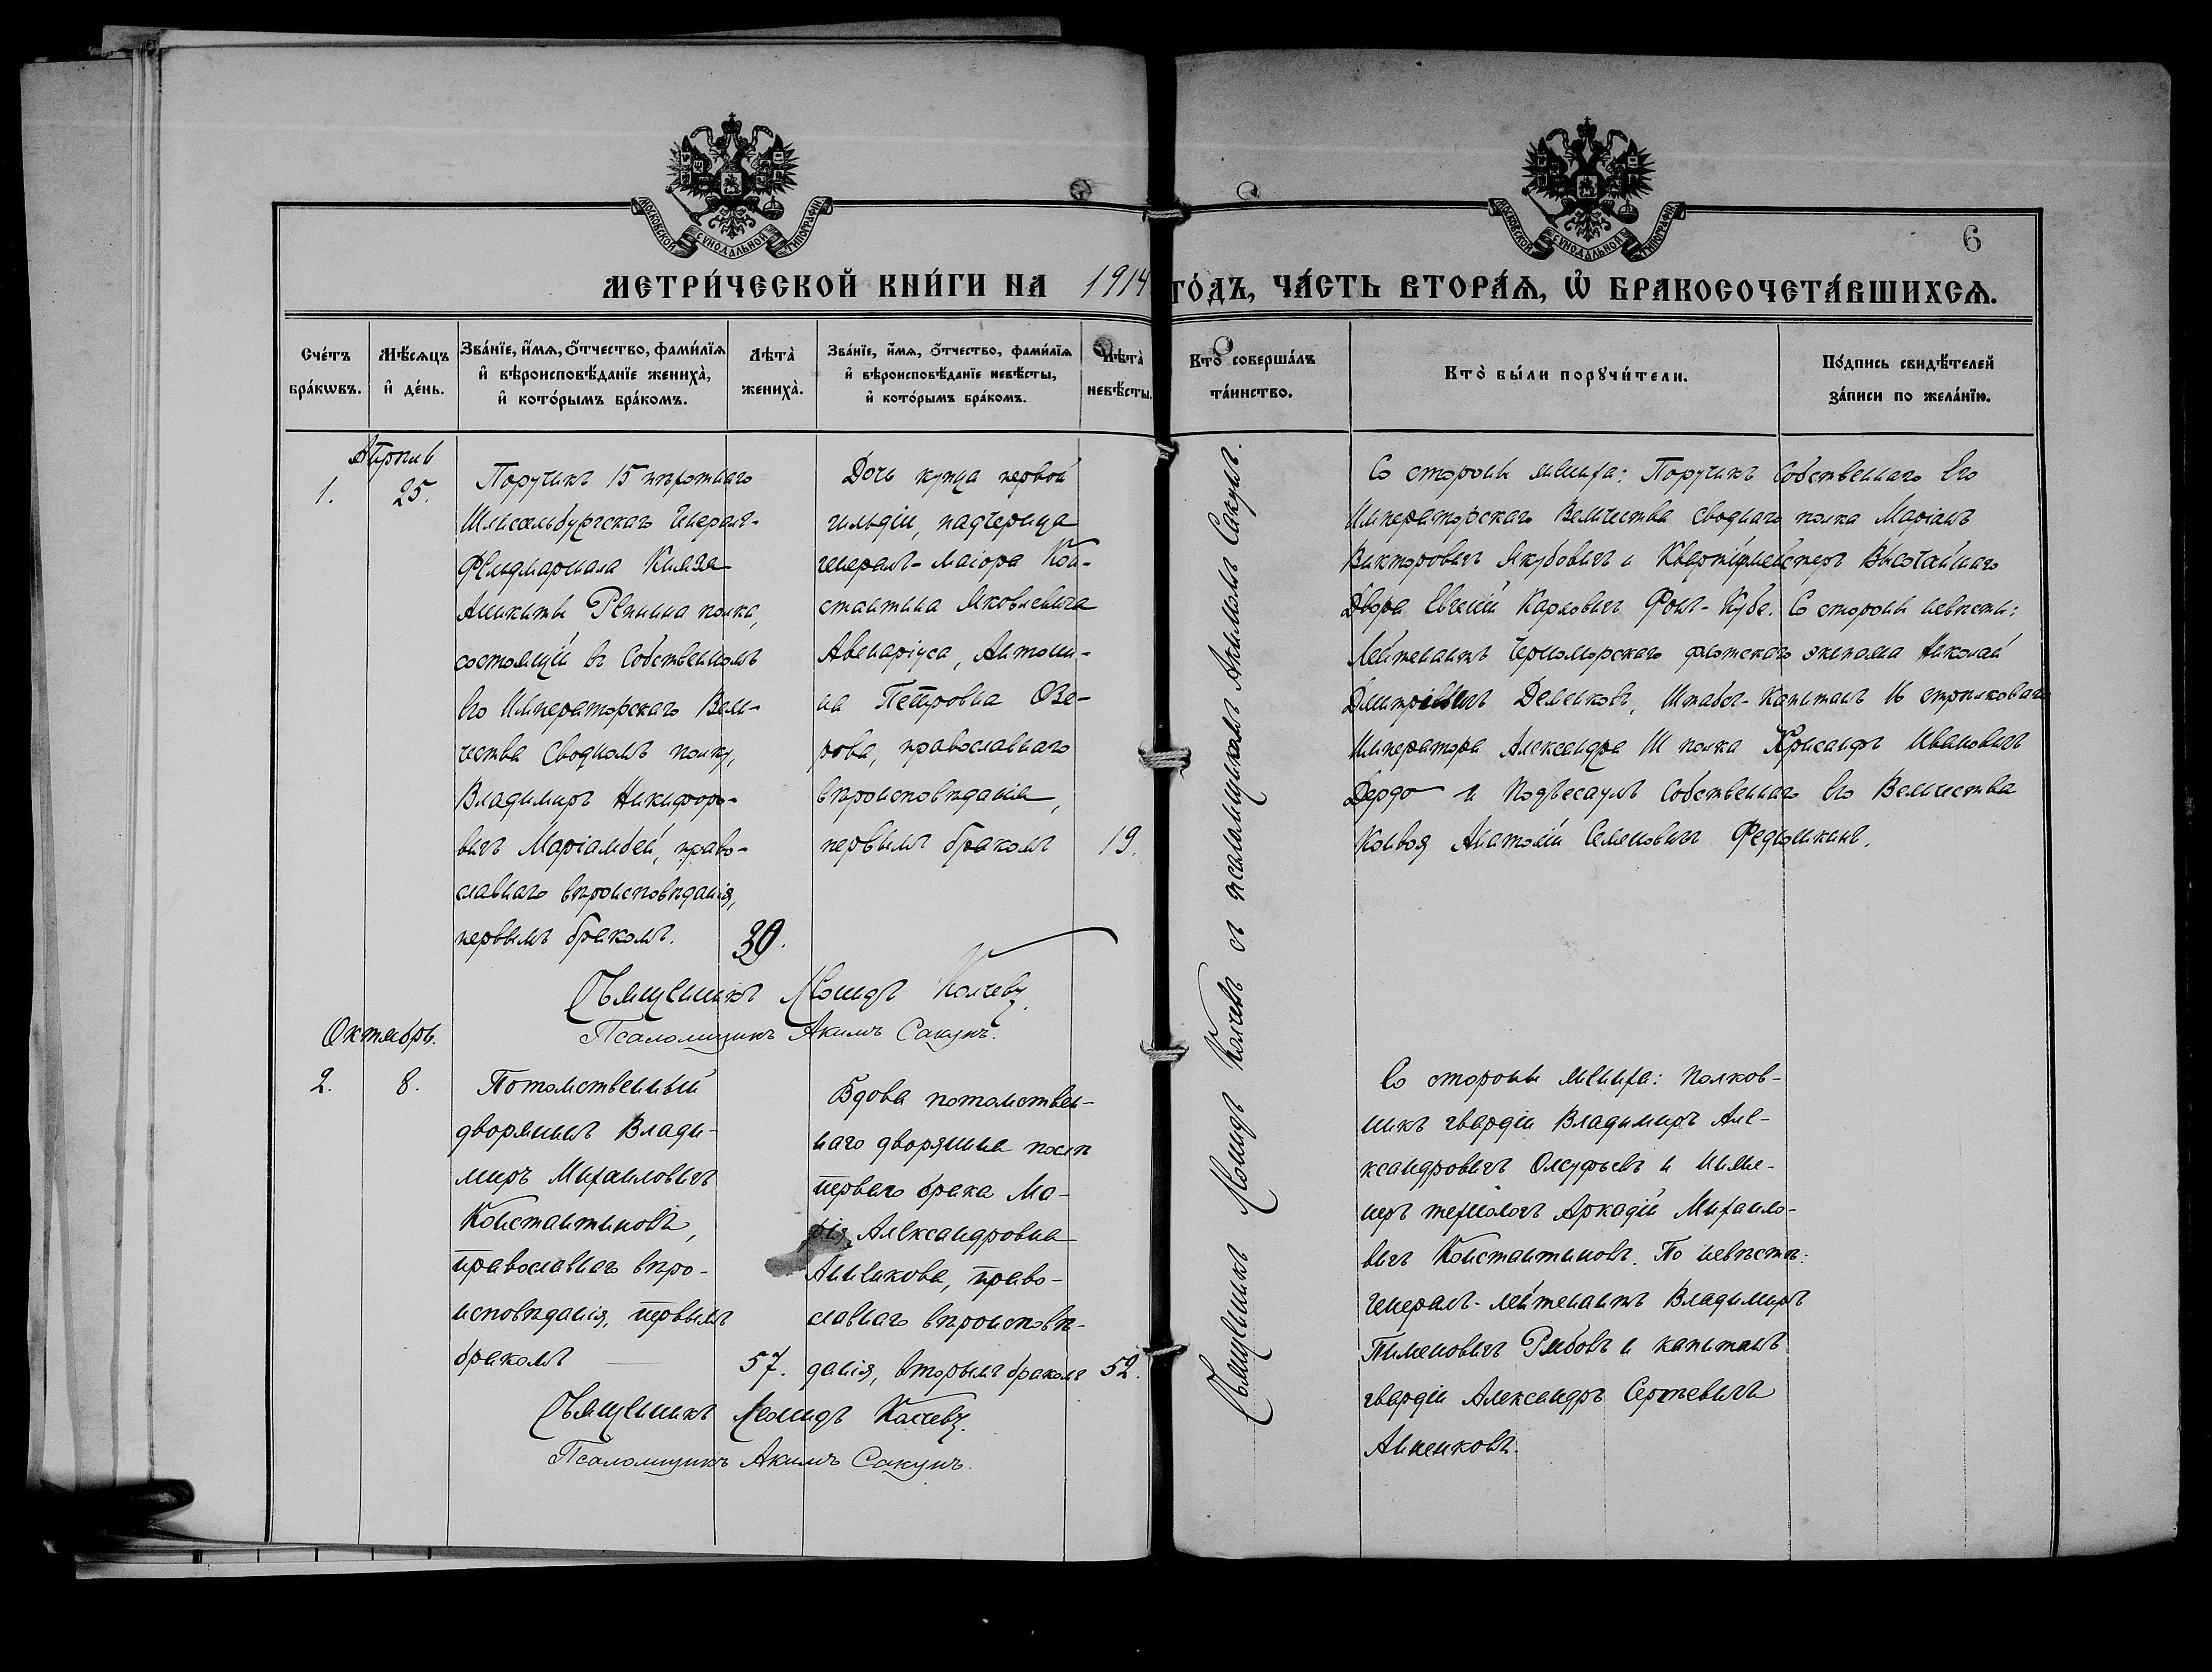 МОСКОВСКОЙ СУНОДАЛЬНОЙ ТИПОГРАФІИ
МОСКОВСКОЙ СУНОДАЛЬНОЙ ТИПОГРАФІИ
6
МЕТРИ́ЧЕСКОЙ КНИ́ГИ НА 1914 ГО́ДЪ, ЧА́СТЬ ВТОРА́Ѧ, Ѡ҆ БРАКОСОЧЕТА́ВШИХСѦ.
Сче́тъ
бра́кѡвъ.
Мѣ́сяцъ
и҆ де́нь.
Зва́нїе, и҆́мѧ, ѻ҆́тчество, фами́лїѧ
и҆ вѣроисповѣ́данїе жениха̀,
и҆ кото́рымъ бра́комъ.
Лѣта̀
жениха̀.
Зва́нїе, и҆́мѧ, ѻ҆́тчество, фами́лїѧ
и҆ вѣроисповѣ́данїе невѣ́сты,
и҆ кото́рымъ бра́комъ.
Лѣта̀
невѣ́сты.
Кто̀ соверша́лъ
та́инство.
Кто̀ бы́ли порꙋчи́тели.
По́дпись свидѣ́телей
за́писи по жела́нїю.
Апрѣль
1.
25.
Поручикъ 15 пѣхотнаго
Шлиссельбургскаго Генералъ-
Фельдмаршала Князя
Аникиты Репнина полка,
состоящій въ Собственномъ
Его Императорскаго Вели-
чества Сводномъ полку,
Владимиръ Никифоро-
вичъ Маріамбей, право-
славнаго вѣроисповѣданія,
первымъ бракомъ.
30.
Дочь купца первой
гильдіи, падчерица
генералъ-маіора Кон-
стантина Яковлевича
Авенаріуса, Антони-
на Петровна Озе-
рова, православнаго
вѣроисповѣданія,
первымъ бракомъ
19.
Священникъ Леонидъ Колчевъ съ псаломщикомъ Акимомъ Сакунъ.
Со стороны жениха: Поручикъ Собственнаго Его
Императорскаго Величества своднаго полка Маріанъ
Викторовичъ Якубовичъ и Квартирмейстеръ Высочайшаго
Двора Евгеній Карловичъ Фонъ-Кубе. Со стороны невѣсты:
Лейтенантъ Черноморскаго флотскаго экипажа Николай
Дмитріевичъ Деменковъ, Штабсъ-Капитанъ 16 стрѣлковаго
Императора Александра III полка Хрисанфъ Ивановичъ
Дердо и Подъесаулъ Собственнаго Его Величества
Конвоя Анатолій Семеновичъ Федюшкинъ.
Священникъ Леонидъ Колчевъ.
Псаломщикъ Акимъ Сакунъ.
Октябрь.
2.
8.
Потомственный
дворянинъ Влади-
миръ Михаиловичъ
Константиновъ,
православнаго вѣро-
исповѣданія, первымъ
бракомъ
57.
Вдова потомствен-
наго дворянина послѣ
перваго брака Ма-
рія Александровна
Анненкова, право-
славнаго вѣроисповѣ-
данія, вторымъ бракомъ
52.
Со стороны жениха: Полков-
никъ гвардіи Владимиръ Але-
ксандровичъ Олсуфьевъ и инже-
неръ технологъ Аркадій Михаило-
вичъ Константиновъ. По невѣстѣ:
Генералъ-лейтенантъ Владимиръ
Пименовичъ Рябовъ и капитанъ
гвардіи Александръ Сергѣевичъ
Анненковъ.
Священникъ Леонидъ Колчевъ.
Псаломщикъ Акимъ Сакунъ.